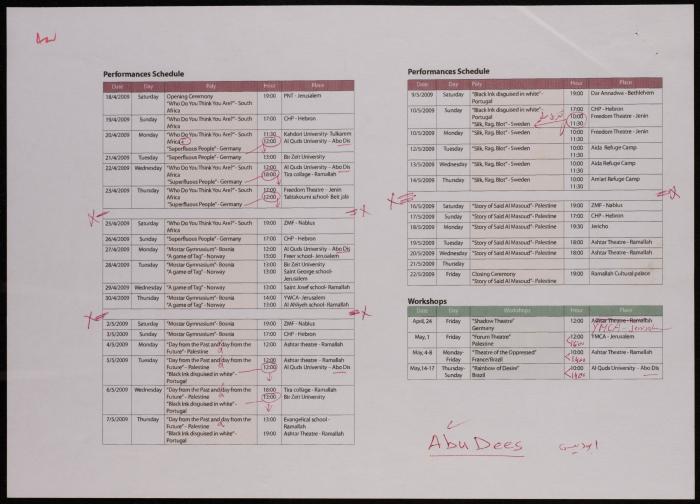 Performances Schedule
Date Day Paly Hour Place
18/4/2009 Saturday Opening Ceremony 19:00 PNT - Jerusalem
"Who Do You Think You Are?"- South
Africa
19/4/2009 Sunday "Who Do You Think You Are?"- South 17:00 CHP - Hebron
Africa
20/4/2009 Monday "Who Do You Think You Are?"- South 11:30 Kahdori University- Tulkarm
Africa 12:00 Al Quds University - Abo Dis
"Superfluous People" - Germany
21/4/2009 Tuesday "Superfluous People" - Germany 13:00 Bir Zeit University
22/4/2009 Wednesday "Who Do You Think You Are?"- South 12:00 Al Quds University - Abo Dis
Africa 18:00 Tira collage - Ramallah
"Superfluous People" - Germany
23/4/2009 Thursday "Who Do You Think You Are?"- South 17:00 Freedom Theatre - Jenin
Africa 12:00 Tabtakoumi school- Beit jala
"Superfluous People" - Germany
25/4/2009 Saturday "Who Do You Think You Are?"- South 19:00 ZMF - Nablus
Africa
26/4/2009 Sunday "Superfluous People" - Germany 17:00 CHP - Hebron
27/4/2009 Monday "Mostar Gymnasium"- Bosnia 12:00 Al Quds University - Abo Dis
"A game of Tag" - Norway 15:00 Freer school- Jerusalem
28/4/2009 Tuesday "Mostar Gymnasium"- Bosnia 13:00 Bir Zeit University
"A game of Tag" - Norway 13:00 Saint George school-
Jerusalem
29/4/2009 Wednesday "A game of Tag" - Norway 13:00 Saint Josef school- Ramallah
30/4/2009 Thursday "Mostar Gymnasium"- Bosnia 14:00 YWCA- Jerusalem
"A game of Tag" - Norway 13:00 Al Ahliyeh school- Ramallah
2/5/2009 Saturday "Mostar Gymnasium"- Bosnia 19:00 ZMF - Nablus
3/5/2009 Sunday "Mostar Gymnasium"- Bosnia 17:00 CHP - Hebron
4/5/2009 Monday "Day from the Past and day from the 12:00 Ashtar theatre - Ramallah
Future" - Palestine
5/5/2009 Tuesday "Day from the Past and day from the 12:00 Ashtar theatre - Ramallah
Future" - Palestine 12:00 Al Quds University - Abo Dis
"Black Ink disguised in white"-
Portugal
6/5/2009 Wednesday "Day from the Past and day from the 18:00 Tira collage - Ramallah
Future" - Palestine 13:00 Bir Zeit University
"Black Ink disguised in white"-
Portugal
7/5/2009 Thursday "Day from the Past and day from the 13:00 Evangelical school -
Future" - Palestine Ramallah
"Black Ink disguised in white"- 19:00 Ashtar Theatre - Ramallah
Portugal
Performances Schedule
Date Day Play Hour Place
9/5/2009 Saturday "Black Ink disguised in white"- 19:00 Dar Annadwa - Bethlehem
Portugal
10/5/2009 Sunday "Black Ink disguised in white"- 17:00 CHP - Hebron
Portugal 10:00 Freedom Theatre - Jenin
"Silk, Rag, Blot" - Sweden 11:30
10/5/2009 Monday "Silk, Rag, Blot" - Sweden 10:00 Freedom Theatre - Jenin
11:30
12/5/2009 Tuesday "Silk, Rag, Blot" - Sweden 10:00 Aida Refuge Camp
11:30
13/5/2009 Wednesday "Silk, Rag, Blot" - Sweden 10:00 Aida Refuge Camp
11:30
14/5/2009 Thursday "Silk, Rag, Blot" - Sweden 10:00 Am'ari Refuge Camp
11:30
16/5/2009 Saturday "Story of Said Al Masoud" - Palestine 19:00 ZMF - Nablus
17/5/2009 Sunday "Story of Said Al Masoud" - Palestine 17:00 CHP - Hebron
18/5/2009 Monday "Story of Said Al Masoud" - Palestine 19:30 Jericho
19/5/2009 Tuesday "Story of Said Al Masoud" - Palestine 18:00 Ashtar Theatre - Ramallah
20/5/2009 Wednesday "Story of Said Al Masoud" - Palestine 18:00 Ashtar Theatre - Ramallah
21/5/2009 Thursday
22/5/2009 Friday Closing Ceremony 19:00 Ramallah Cultural palace
"Story of Said Al Masoud" - Palestine
Workshops
Date Day Workshops Hour Place
April, 24 Friday "Shadow Theatre" 12:00 Ashtar Theatre - Ramallah
Germany YMCA - Jerusalem
May, 1 Friday "Forum Theatre" 12:00 YMCA - Jerusalem
Palestine 16:00
May, 4-8 Monday- "Theatre of the Oppressed" 10:00 Ashtar Theatre - Ramallah
Friday France/Brazil 14:00
May,14-17 Thursday- "Rainbow of Desire" 10:00 Al Quds University - Abo Dis
Sunday Brazil 14:00
Abu Dees ابوديس